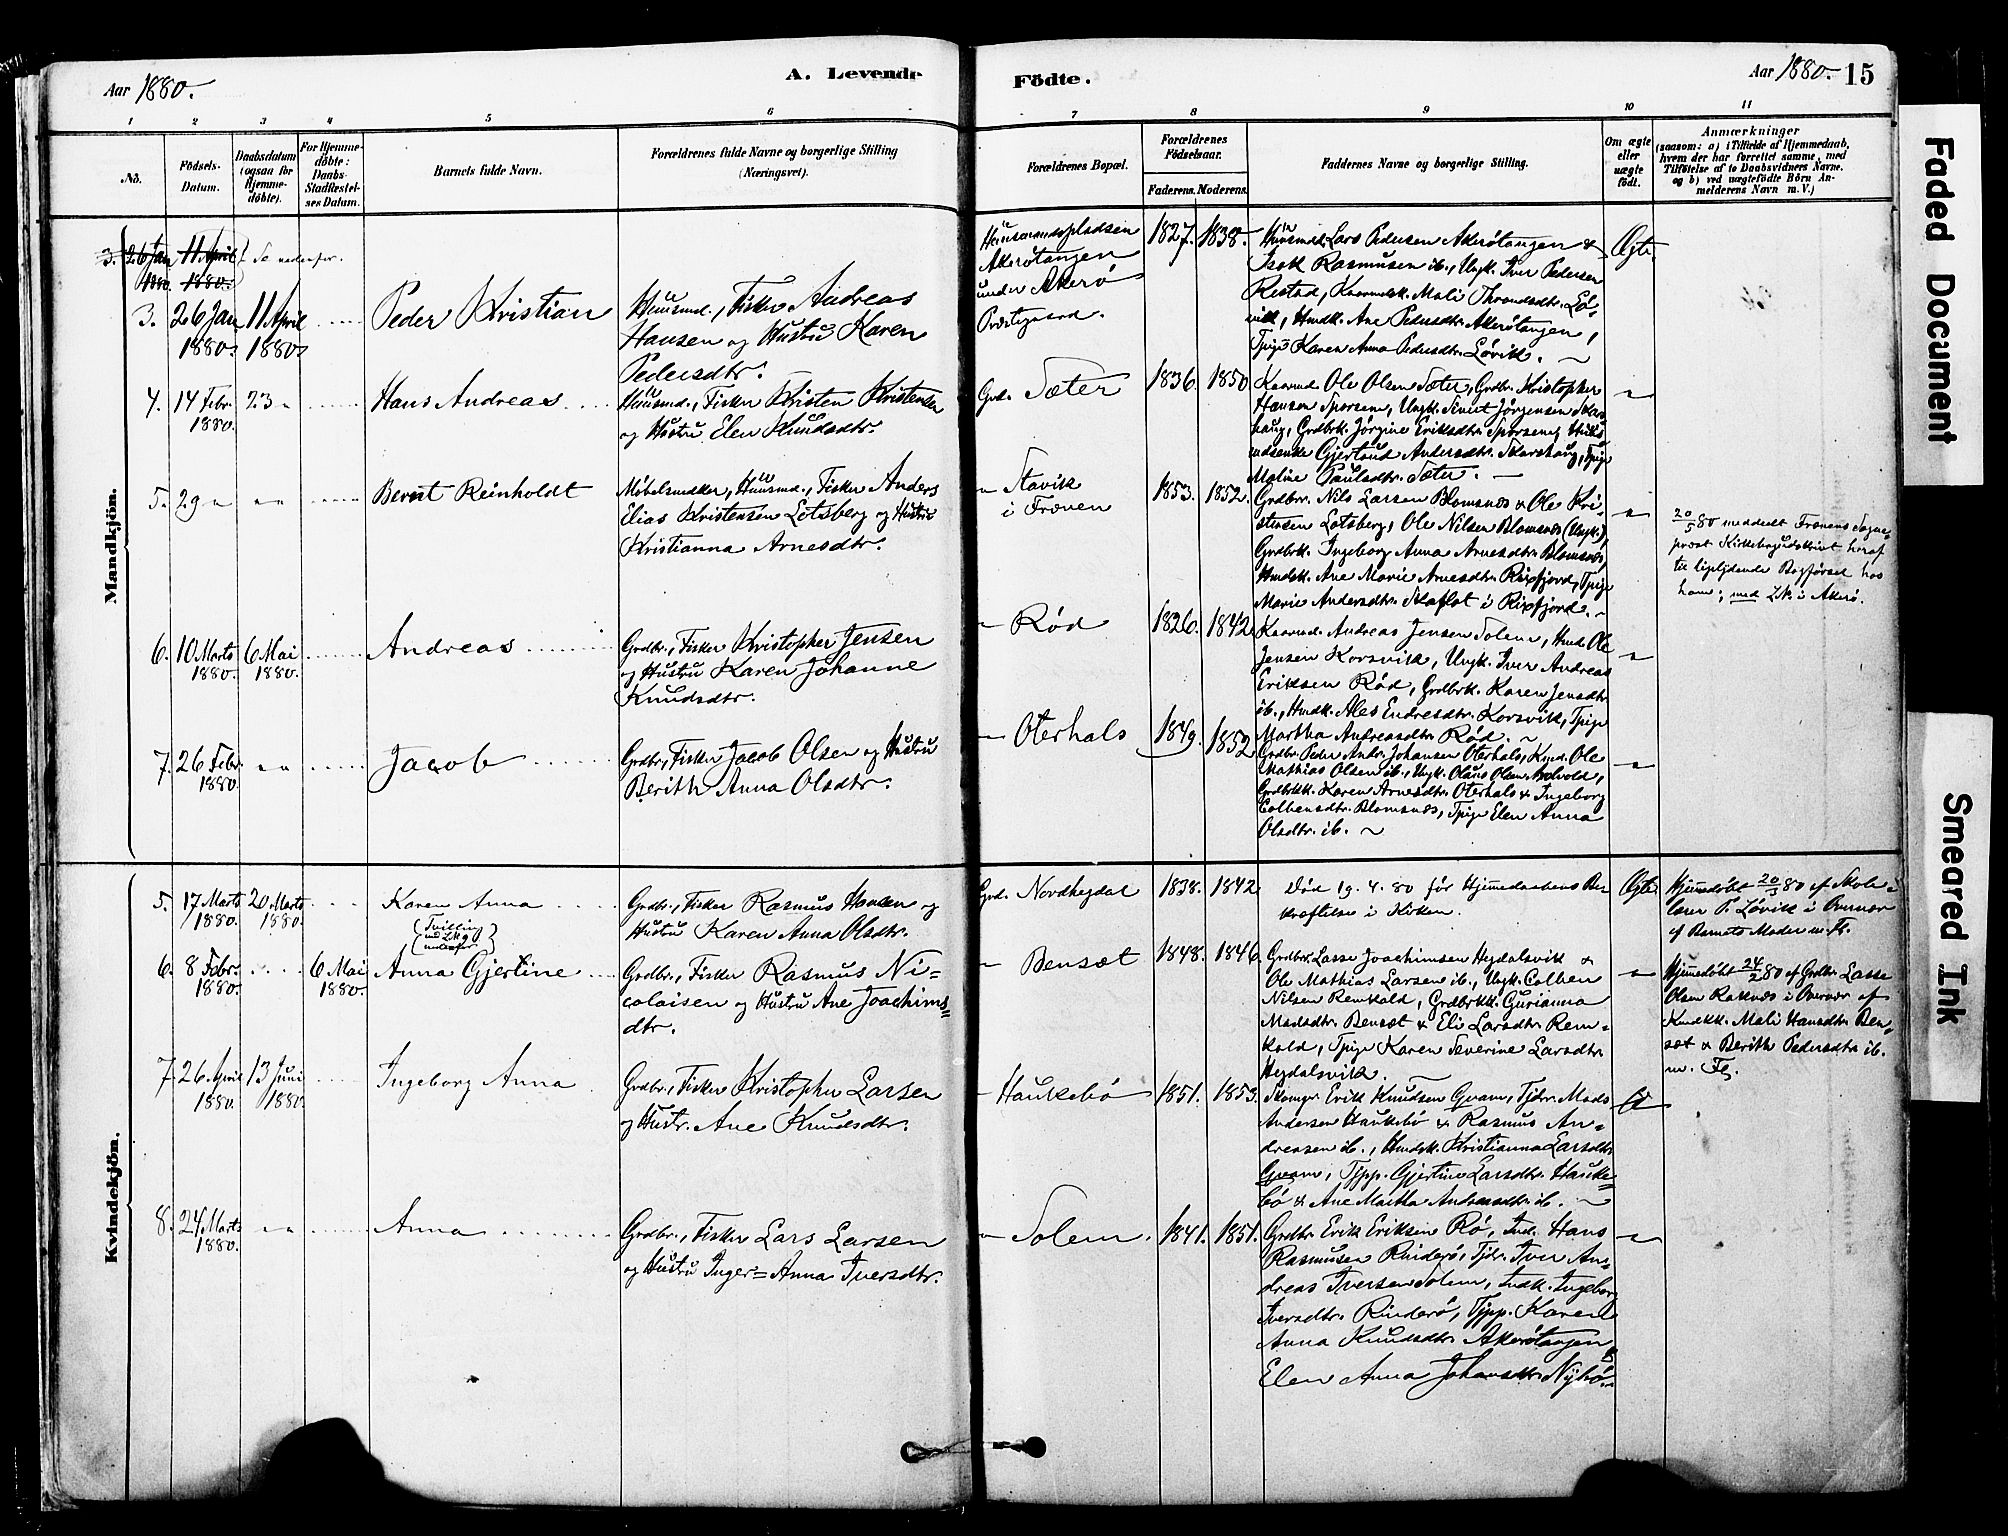 Aar 1880.
A. Levende
Födte.
Aar 1880. 15
1 2 3 4 5 6 7 8 9 10 11
No.
Födsels-
Datum.
Daabsdatum
(ogsaa for
Hjemme-
døbte).
For Hjemme-
døbte:
Daabs-
Stadfæstel-
ses Datum.
Barnets fulde Navn.
Forældrenes fulde Navne og borgerlige Stilling
(Næringsvei).
Forældrenes Bopæl.
Forældrenes
Födselsaar.
Faderens. Moderens.
Faddernes Navne og borgerlige Stilling.
Om ægte
eller
uægte
födt.
Anmærkninger
(saasom: a) i Tilfælde af Hjemmedaab,
hvem der har forrettet samme, med
Tilföielse af to Daabsvidners Navne.
og b) ved uægtefödte Börn An-
melderens Navn m. V.)
Mandkjön.
3. 26 Jan 11 April Se nedenfor.
1880. 1880.
3. 26 Jan 11 April
1880. 1880.
Peder Kristian
Huusmd., Fisker Andreas
Hansen og Hustru Karen
Pedersdtr.
Huusmandspladsen
Akerötangen
under Akerö
Præstegaard.
1827. 1838.
Huusmd. Lars Pedersen Akerötangen &
Isak Rasmusen ib., Ungk. Iver Pedersen
Restad, Kaarmdsk. Mali Throndsdtr. Lö-
vik, Hmdk. Ane Pedersdtr. Akerötangen,
Tpige Karen Anna Pedersdtr. Lövik.
Ægte
4. 14 Febr. 23 "
1880.
Hans Andreas
Huusmd., Fisker Kristen Kristensen
og Hustru Elen Knudsdtr.
Grd. Sæter
1836. 1850.
Kaarmd. Ole Olsen Sæter, Grdbr. Kristopher
Hansen Sporsem, Ungk. Sivert Jörgensen Skars-
haug, Grdbrk. Jörgine Eriksdtr. Sporsem, Huus-
mdsenke Gjertrud Andersdtr. Skarshaug, Tpige
Maline Paulsdtr. Sæter.
5. 29 "
Bernt Reinholdt
Möbelsnedker, Huusmd., Fisker Anders
Elias Kristensen Lotsberg og Hustru
Kristianna Arnesdtr.
Stavik
i Frænen
1853. 1852.
Grdbr. Nils Larsen Blomsnæs & Ole Kri-
stensen Lotsberg, Ole Nilsen Blomsnæs (Ungk.),
Grdbrk. Ingeborg Anna Arnesdtr. Blomsnæs,
Hmdsk. Ane Marie Arnesdtr. Rixfjord, Tpige
Marie Andersdtr. Slaflot i Rixfjord.
20/5 80 meddeelt Frænens Sogne-
præst Kirkebogsudskrivt heraf
til ligelydende Bogförsel hos
ham; med Lk. i Akerö.
6. 10 Marts 6 Mai
1880. 1880.
Andreas
Grdbr., Fisker Kristopher Jensen
og Hustru Karen Johanne
Knudsdtr.
Röd
1826. 1842.
Kaarmd. Andreas Jensen Solem, Hmd. Ole
Jensen Korsvik, Ungk. Iver Andreas
Eriksen Röd, Grdbrk. Karen Jensdtr.
ib., Hmdk. Ales Endresdtr. Korsvik, Tpige
Martha Andreasdtr. Röd.
7. 26 Febr.
1880.
Jacob
Grdbr., Fisker Jacob Olsen og Hustru
Berith Anna Olsdtr.
Oterhals
1849. 1852.
Grdbr. Peder Andr. Johansen Oterhals, Kmd. Ole
Mathias Olsen ib., Ungk. Olaus Olsen
Grdbrkk. Karen Arnesdtr. Oterhals & Ingeborg
Colbensdtr. Blomsnæs, Tpige Elen Anna
Olsdtr. ib.
Kvindekjön.
5. 17 Marts 20 Marts
1880. 1880.
Karen Anna
(Tvilling
ud Lk 9
nedenfor)
Grdbr., Fisker Rasmus Hansen og
Hustru Karen Anna Olsdtr.
Grd. Nordhegdal
1838. 1842.
Död 19. 4. 80 för Hjemmedaabens Be-
kræftelse i Kirken.
Ægte
Hjemmedöbt 20/3 80 af Skole-
lærer P. Lövik i Overvær
af Barnets Moder m. Fl.
6. 8 Febr. 6 Mai
1880. 1880.
Anna Gjertine
Grdbr., Fisker Rasmus Ni-
colaisen og Hustru Ane Joachims-
dtr.
Bensæt
1848. 1846.
Grdbr. Lasse Joachimsen Hegdalsvik &
Ole Mathias Larsen ib., Ungk. Colben
Nilsen Remkald, Grdbrkk. Gurianna
Madsdtr. Bensæt & Eli Larsdtr. Rem-
kald, Tpige Karen Severine Larsdtr.
Hegdalsvik.
Hjemmedöbt 24/2 80 af Grdbr. Lasse
Olsen Raknæs i Overvær af
Kmdkk. Mali Hansdtr. Ben-
sæt & Berith Pedersdtr. ib.
m. Fl.
7. 26 April 13 Juni
1880. 1880.
Ingeborg Anna
Grdbr., Fisker Kristopher Larsen
og Hustr. Ane Knudsdtr.
Haukebö
1851. 1853.
Skomgr. Erik Knudsen Gvam, Tjdr. Mads
Andersen Haukebö & Rasmus An-
dreasen ib., Hmdsk. Kristianna Larsdtr.
Gvam, Tjpp. Gjertine Larsdtr. Hauke-
bö & Ane Martha Andreasdtr. ib.
8. 24 Marts
1880.
Anna
Grdbr., Fisker Lars Larsen
og Hustru Inger-Anna Iversdtr.
Solem.
1841. 1851.
Grdbr. Erik Eriksen Rö, Ind. Hans
Rasmusen Rinderö, Tjdr. Iver An-
dreas Iversen Solem, Indk. Ingeborg
Iversdtr. Rinderö, Tjpp. Karen
Anna Knudsdtr. Akerötangen &
Elen Anna Johansdtr. Nybö.
Faded Document
Smeared Ink